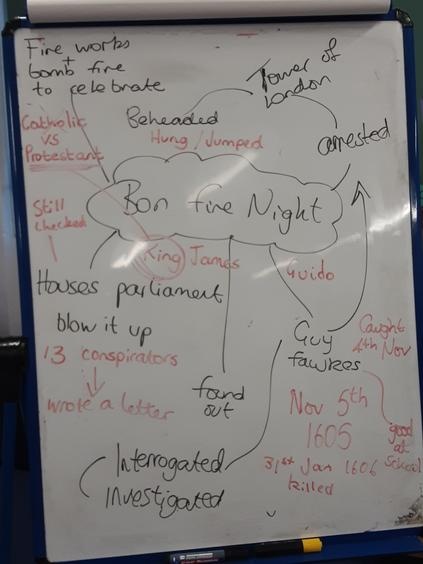 Fire works
+
bomb fire
to celebrate
Tower of
London
Catholic
vs
Protestant
Beheaded
Hung / Jumped
arrested
Bon fire Night
Still
Checked
King James
Guido
Houses parliament
blow it up
13 conspirators
wrote a letter
found
out
Guy
fawkes
Caught
4th Nov
Nov 5th
1605
31st Jan 1606
killed
good
at
school
Interrogated
Investigated